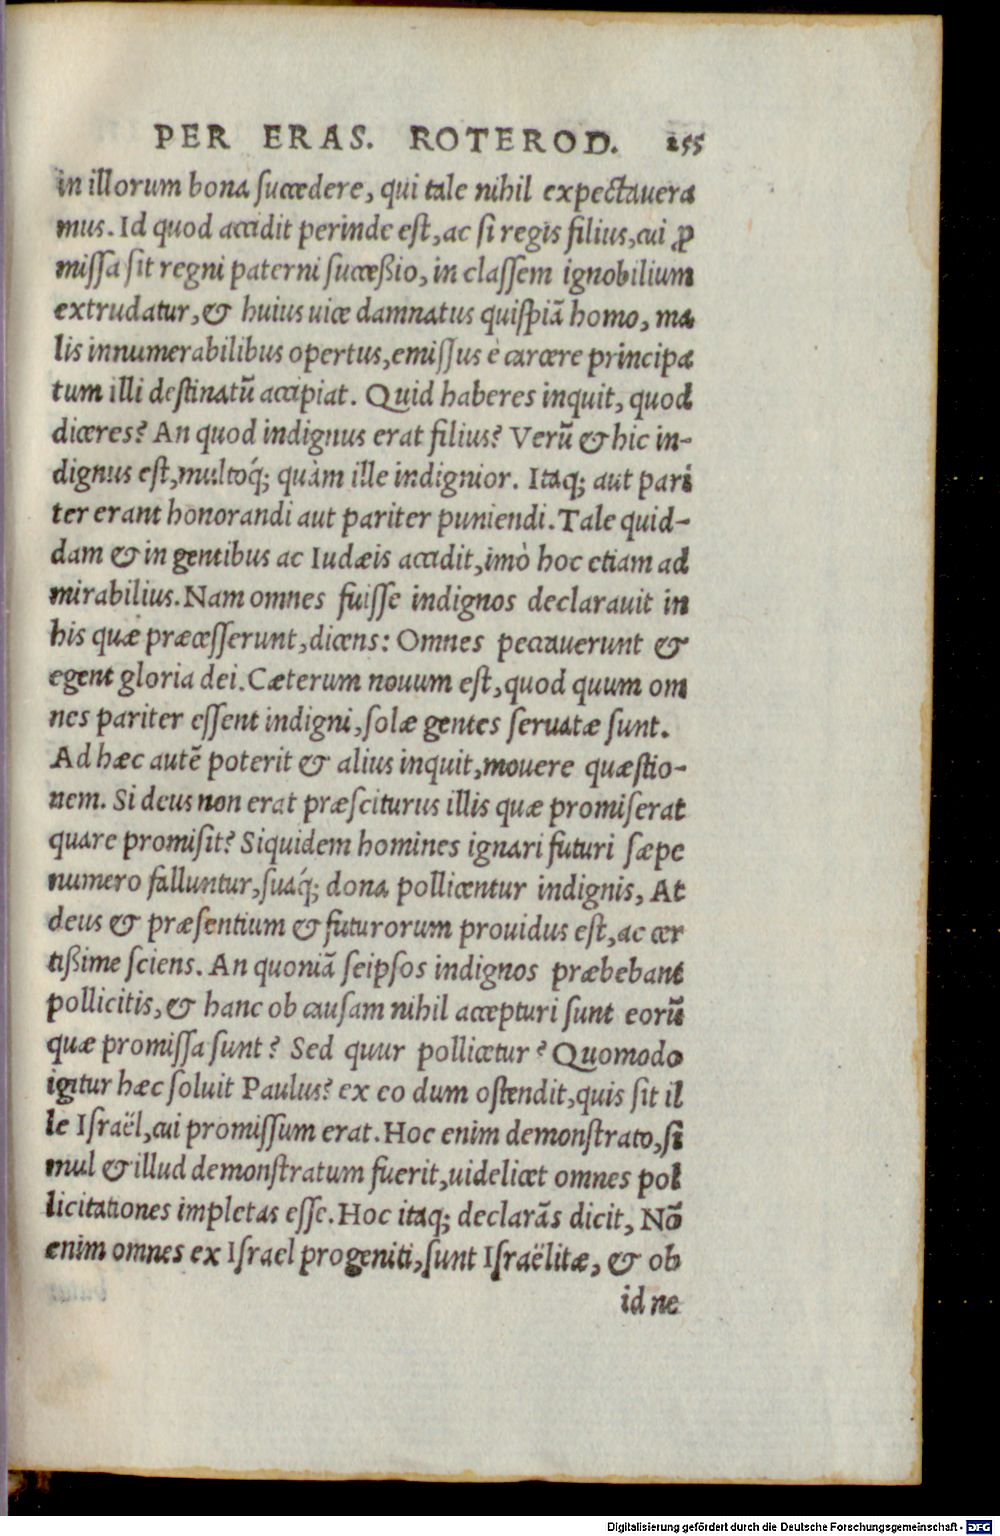 PER ERAS. ROTEROD. 255
in illorum bona succedere, qui tale nihil expectauera
mus. Id quod accidit perinde est, ac si regis filius, cui ꝓ
missa sit regni paterni succeßio, in classem ignobilium
extrudatur, & huius uice damnatus quispiã homo, ma
lis innumerabilibus opertus, emissus è carcere principa
tum illi destinatũ accipiat. Quid haberes inquit, quod
diceres? An quod indignus erat filius? Verũ & hic in-
dignus est, multoq́; quàm ille indignior. Itaq; aut pari
ter erant honorandi aut pariter puniendi. Tale quid-
dam & in gentibus ac Iudæis accidit, imò hoc etiam ad
mirabilius. Nam omnes fuisse indignos declarauit in
his quæ præcesserunt, dicens: Omnes peccauerunt &
egent gloria dei. Cæterum nouum est, quod quum om
nes pariter essent indigni, solæ gentes seruatæ sunt.
Ad hæc autẽ poterit & alius inquit, mouere quæstio-
nem. Si deus non erat præsciturus illis quæ promiserat
quare promisit? Siquidem homines ignari futuri sæpe
numero falluntur, suaq́; dona pollicentur indignis, At
deus & præsentium & futurorum prouidus est, ac cer
tißime sciens. An quoniã seipsos indignos præbebant
pollicitis, & hanc ob causam nihil accepturi sunt eorũ
quæ promissa sunt? Sed quur pollicetur? Quomodo
igitur hæc soluit Paulus? ex eo dum ostendit, quis sit il
le Israël, cui promissum erat. Hoc enim demonstrato, si
mul & illud demonstratum fuerit, uidelicet omnes pol
licitationes impletas esse. Hoc itaq; declarãs dicit, Nõ
enim omnes ex Israel progeniti, sunt Israëlitæ, & ob
id ne
Digitalisierung gefördert durch die Deutsche Forschungsgemeinschaft - DFG